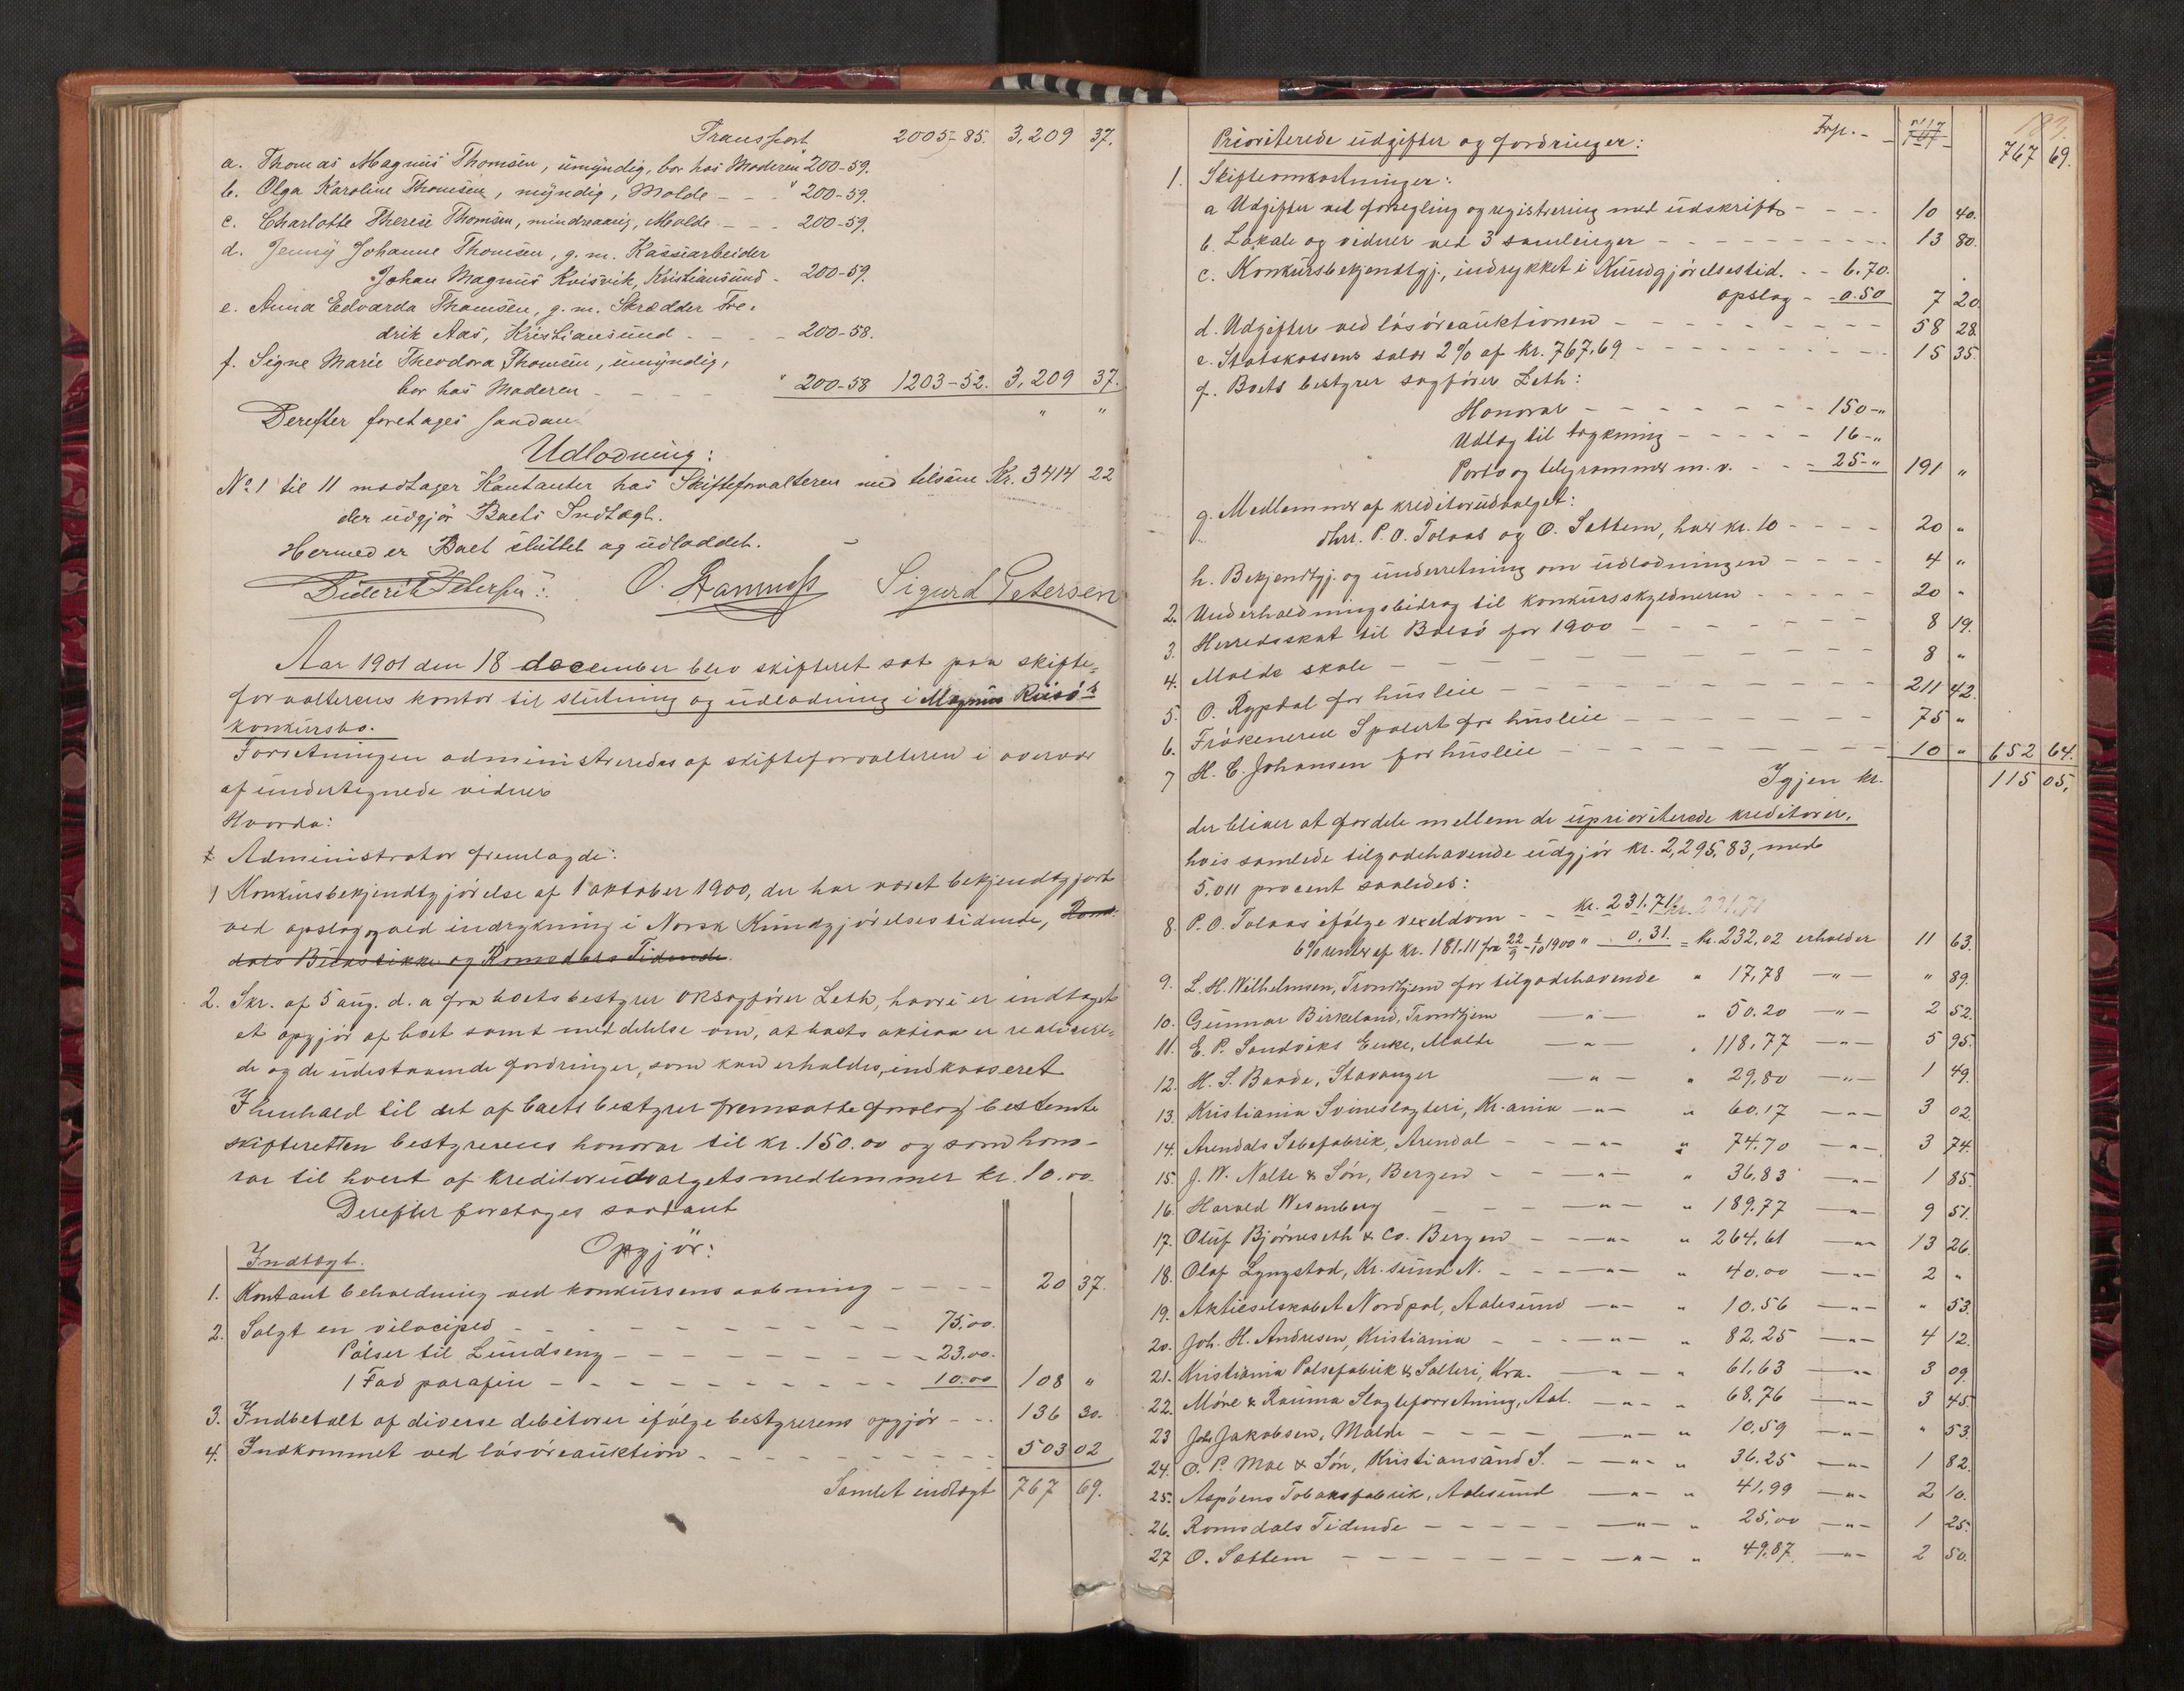 Transport 2005-85. 3,209 37.
a. Thomas Magnus Thomsen, umyndig, bor hos Moderen " 200-59.
b. Olga Karoline Thomsen, myndig, Molde - - " 200-59.
c. Charlotte Therese Thomsen, mindreaarig, Molde - - - 200-59.
d. Jenny Johanne Thomsen, g. m. Kassiarbeider
Johan Magnus Kvisvik, Kristiansund - 200-59.
e. Anna Edvarda Thomsen, g. m. Skrædder Fre-
drik Aas, Kristiansund - - - 200-58.
f. Signe Marie Theodora Thomsen, umyndig,
bor hos Moderen - - - - " 200-58 1203-52. 3,209 37.
Derefter foretages saadan " "
Udlodning:
No 1 til 11 modtager Kontanter hos Skifteforvalteren med tilsam Kr. 3414 22
der udgjör Boets Indtægt.
Hermed er Boet sluttet og udloddet.
Diderik Petersen. O. Hamnes Sigurd Petersen
Aar 1901 den 18 december blev skifteret sat paa skifte-
forvalterens kontor til slutning og udlodning i Magnus Riisö's
konkursbo.
Forretningen administreredes af skifteforvalteren i overvær
af undertegnede vidner
Hvorda:
Administrator fremlagde:
1 Konkursbekjendtgjörelse af 1 oktober 1900, der har været bekjendtgjort
ved opslag og ved indrykning i Norsk Kundgjörelsestidende, Roms-
dals Budstikke og Romsdals Tidende.
2. Skr. af 5 aug. d. a fra boets bestyrer oksagförer Leth, hvori er indtaget
et opgjör af boet samt meddelelse om, at boets aktiva er realisere-
de og de udestaaende fordringer, som kan erholdes, indkasseret
I henhold til det af boets bestyrer fremsatte forslag bestemte
skifteretten bestyrerens honorar til kr. 150.00 og som hono-
rar til hvert af kreditorudvalgets medlemmer kr. 10.00.
Derefter foretages saadant
Opgjör:
Indtægt.
1. Kontant beholdning ved konkursens aabning - - - 20 37.
2. Solgt en velociped - - - - - - 75.00.
Pölser til Lundseng - - - - - - 23.00.
1 Fad parafin - - - - - - 10.00 108 "
3. Indbetalt af diverse debitorer ifölge bestyrerens opgjör - - 136 30.
4. Indkommet ved lösöreauktion - - - - - - 503 02
Samlet indtægt 767 69.
183.
Prioriterede udgifter og fordringer: Trsp. - 767 69.
1. Skifteomkostninger:
a Udgifter ved forsegling og registrering med udskrift - - - - 10 40.
b. Lokale og vidner ved 3 samlinger - - - - - - 13 80.
c. Konkursbekjendtgj., indrykket i Kundgjörelsestid. - - 6.70.
opslag - - 0.50 7 20.
d. Udgifter ved lösöreauktionen - - - - - - 58 28.
e. Statskassens salær 2% af kr. 767,69 - - - - - - 15 35.
f. Boets bestyrer sagförer Leth:
Honorar - - - - - - 150-"
Udlæg til trykning - - - - - 16-"
Porto og telegrammer m. v. - - - 25-" 191 "
g. Medlemmer af kreditorudvalget:
Hrr. P. O. Tolaas og O. Sættem, hver kr. 10 - - - - 20 "
h. Bekjendtgj. og underretning om udlodningen - - - - 4 "
2. Underholdningsbidrag til konkursskyldneren - - - - - 20 "
3. Herredsskat til Bolsö for 1900 - - - - - - 8 19.
4. Molde skole - - - - - - 8 "
5. O. Rypdal for husleie - - - - - - 211 42.
6. Frökenerne Spolert for husleie - - - - - - 75 "
7 H. C. Johansen for husleie - - - - - - 10 " 652 64.
Igjen kr. 115 05.
der bliver at fordele mellem de uprioriterede kreditorer,
hvis samlede tilgodehavende udgjör kr. 2,295,83, med
5,011 procent saaledes:
8. P. O. Tolaas ifölge vexeldom - - kr. 231.71 kr. 231,71
6% renter af kr. 181.11 fra 22/9 - 1/10 1900 " 0,31. = kr. 232,02 erholder 11 63.
9. L. H. Wilhelmsen, Trondhjem for tilgodehavende " 17,78 -"- " 89.
10. Gunnar Birkeland, Trondhjem -"- " 50.20 -"- 2 52.
11. E. P. Sandviks Enke, Molde -"- " 118,77 -"- 5 95.
12. H. S. Baade, Stavanger -"- " 29,80 -"- 1 49.
13. Kristiania Svineslagteri, Kr.ania -"- " 60.17 -"- 3 02.
14. Arendals Sæbefabrik, Arendal - - -"- " 74,70 -"- 3 74.
15. J. W. Nolte & Sön, Bergen - - -"- " 36,83 -"- 1 85.
16. Harald Wesenberg - - - -"- " 189,77 -"- 9 51.
17. Oluf Björneseth & Co. Bergen - - -"- " 264,61 -"- 13 26.
18. Olaf Lyngstad, Kr.sund N. - - - -"- " 40,00 -"- 2 "
19. Aktieselskabet Nordpol, Aalesund -"- " 10,56 -"- " 53.
20. Joh. H. Andresen, Kristiania - - - -"- " 82,25 -"- 4 12.
21. Kristiania Pölsefabrik & Salteri, Kra. -"- " 61,63 -"- 3 09.
22. Möre & Rauma Slagteforretning, Aal. -"- " 68,76 -"- 3 45.
23 Joh Jakobsen, Molde - - - - -"- " 10,59 -"- " 53.
24. O. P. Moe & Sön, Kristiansand S. - -"- " 36,25 -"- 1 82.
25. Aspöens Tobaksfabrik, Aalesund -"- " 41,99 -"- 2 10.
26. Romsdals Tidende - - - - - -"- " 25,00 -"- 1 25.
27 O. Sættem - - - - - - -"- " 49,87. -"- 2 50.